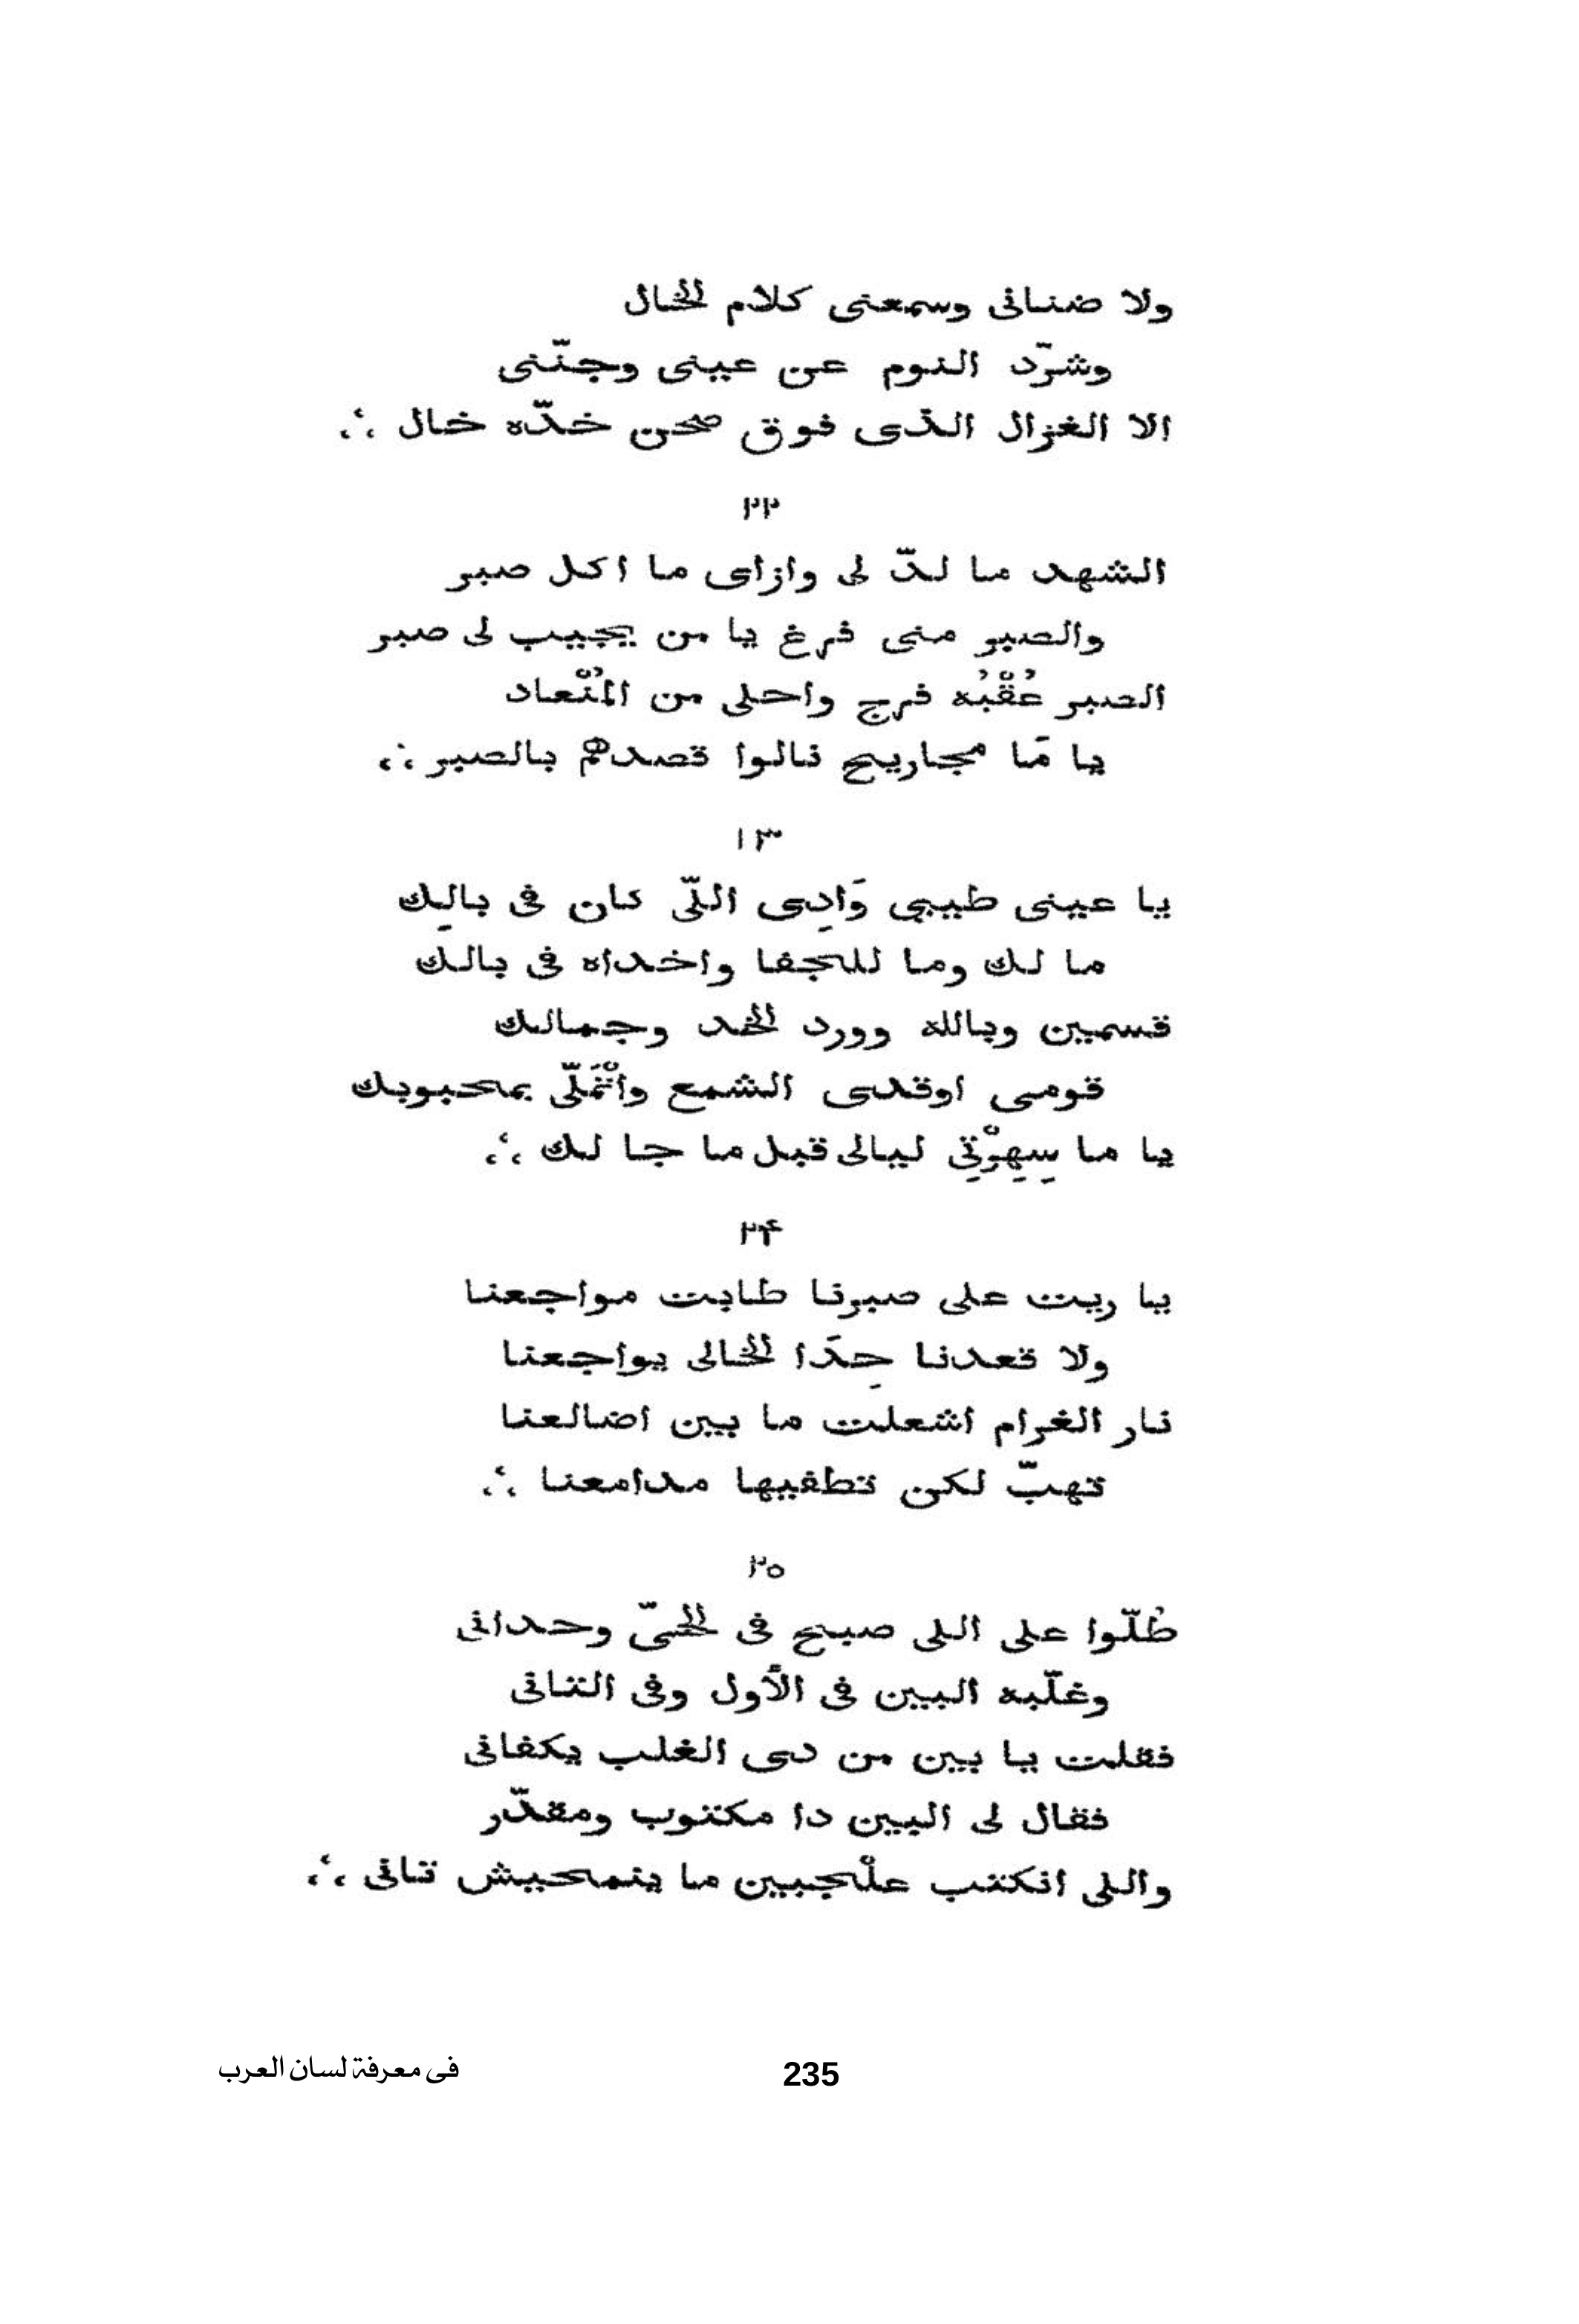 ولا ضنانى وسمعنى كلام الخال
وشرّد النوم عن عينى وجنّنى
الا الغزال الذى فوق صحن خدّه خال ∴
٢٢
الشهد ما لذّ لى وازاى ما اكل صبر
والصبر منى فرغ يا من يجيب لى صبر
الصبر عُقْبُه فرج واحلى من المُنْعاد
يا مَا مجاريح نالوا قصدهم بالصبر ∴
١٣
يا عينى طيبى وَادِى اللّى كان فى بالِك
ما لك وما للجفا واخداه فى بالك
قسمين وبالله وورد الخد وجمالك
قومى اوقدى الشمع واتْمَلّى بمحبوبك
يا ما سِهِرْتِى ليالى قبل ما جا لك ∴
٢۴
يا ريت على صبرنا طابت مواجعنا
ولا قعدنا حِدَا الخالى يواجعنا
نار الغرام اشعلت ما بين اضالعنا
تهبّ لكن تطفيها مدامعنا ∴
٢٥
طُلّوا على اللى صبح فى الحىّ وحدانى
وغلّبه البين فى الأول وفى التانى
فقلت يا بين من دى الغلب يكفانى
فقال لى البين دا مكتوب ومقدّر
واللى انكتب علْجبين ما ينمحيش تانى ∴
235
فى معرفة لسان العرب